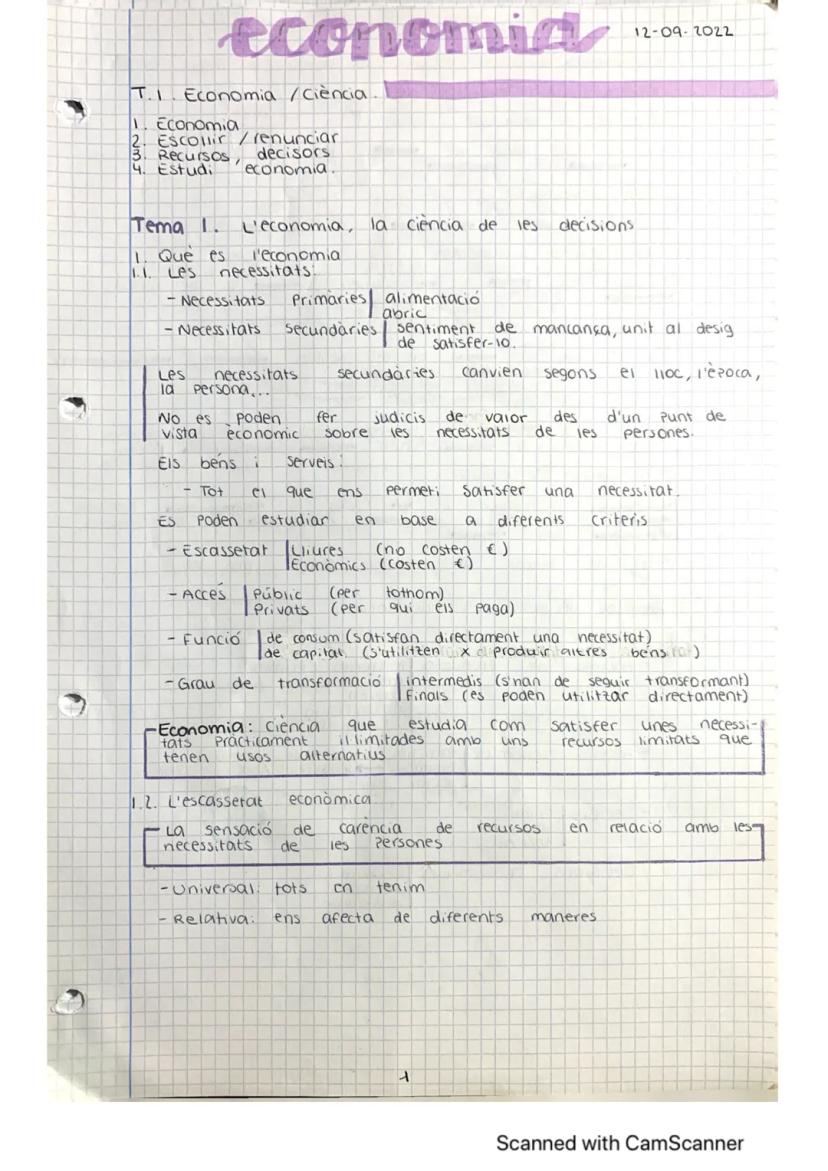 economia 12-09-2022
T.1. Economia / Ciència.
1. Economia
2. Escollir / renunciar
3. Recursos, decisors
4. Estudi economia.
Tema 1. L'economia, la ciència de les decisions
1. Què es l'economia
1.1. Les necessitats:
- Necessitats Primàries | alimentació
abric
- Necessitats secundàries | sentiment de mancança, unit al desig
de satisfer-lo.
Les necessitats secundàries canvien segons el lloc, l'època,
la persona...
No es poden fer judicis de valor des d'un punt de
vista econòmic sobre les necessitats de les persones.
Els béns i serveis:
- Tot el que ens permeti satisfer una necessitat.
Es poden estudiar en base a diferents criteris
- Escassetat | Lliures (no costen €)
Econòmics (costen €)
- Accés | Públic (per tothom)
Privats (per qui els paga)
- Funció | de consum (satisfan directament una necessitat)
de capital (s'utilitzen x produir altres béns)
- Grau de transformació | intermedis (s'han de seguir transformant)
Finals (es poden utilitzar directament)
Economia: Ciència que estudia com satisfer unes necessi-
tats pràcticament il·limitades amb uns recursos limitats que
tenen usos alternatius
1.2. L'escassetat econòmica
La sensació de carència de recursos en relació amb les
necessitats de les persones
- Universal: tots en tenim
- Relativa: ens afecta de diferents maneres
1
Scanned with CamScanner